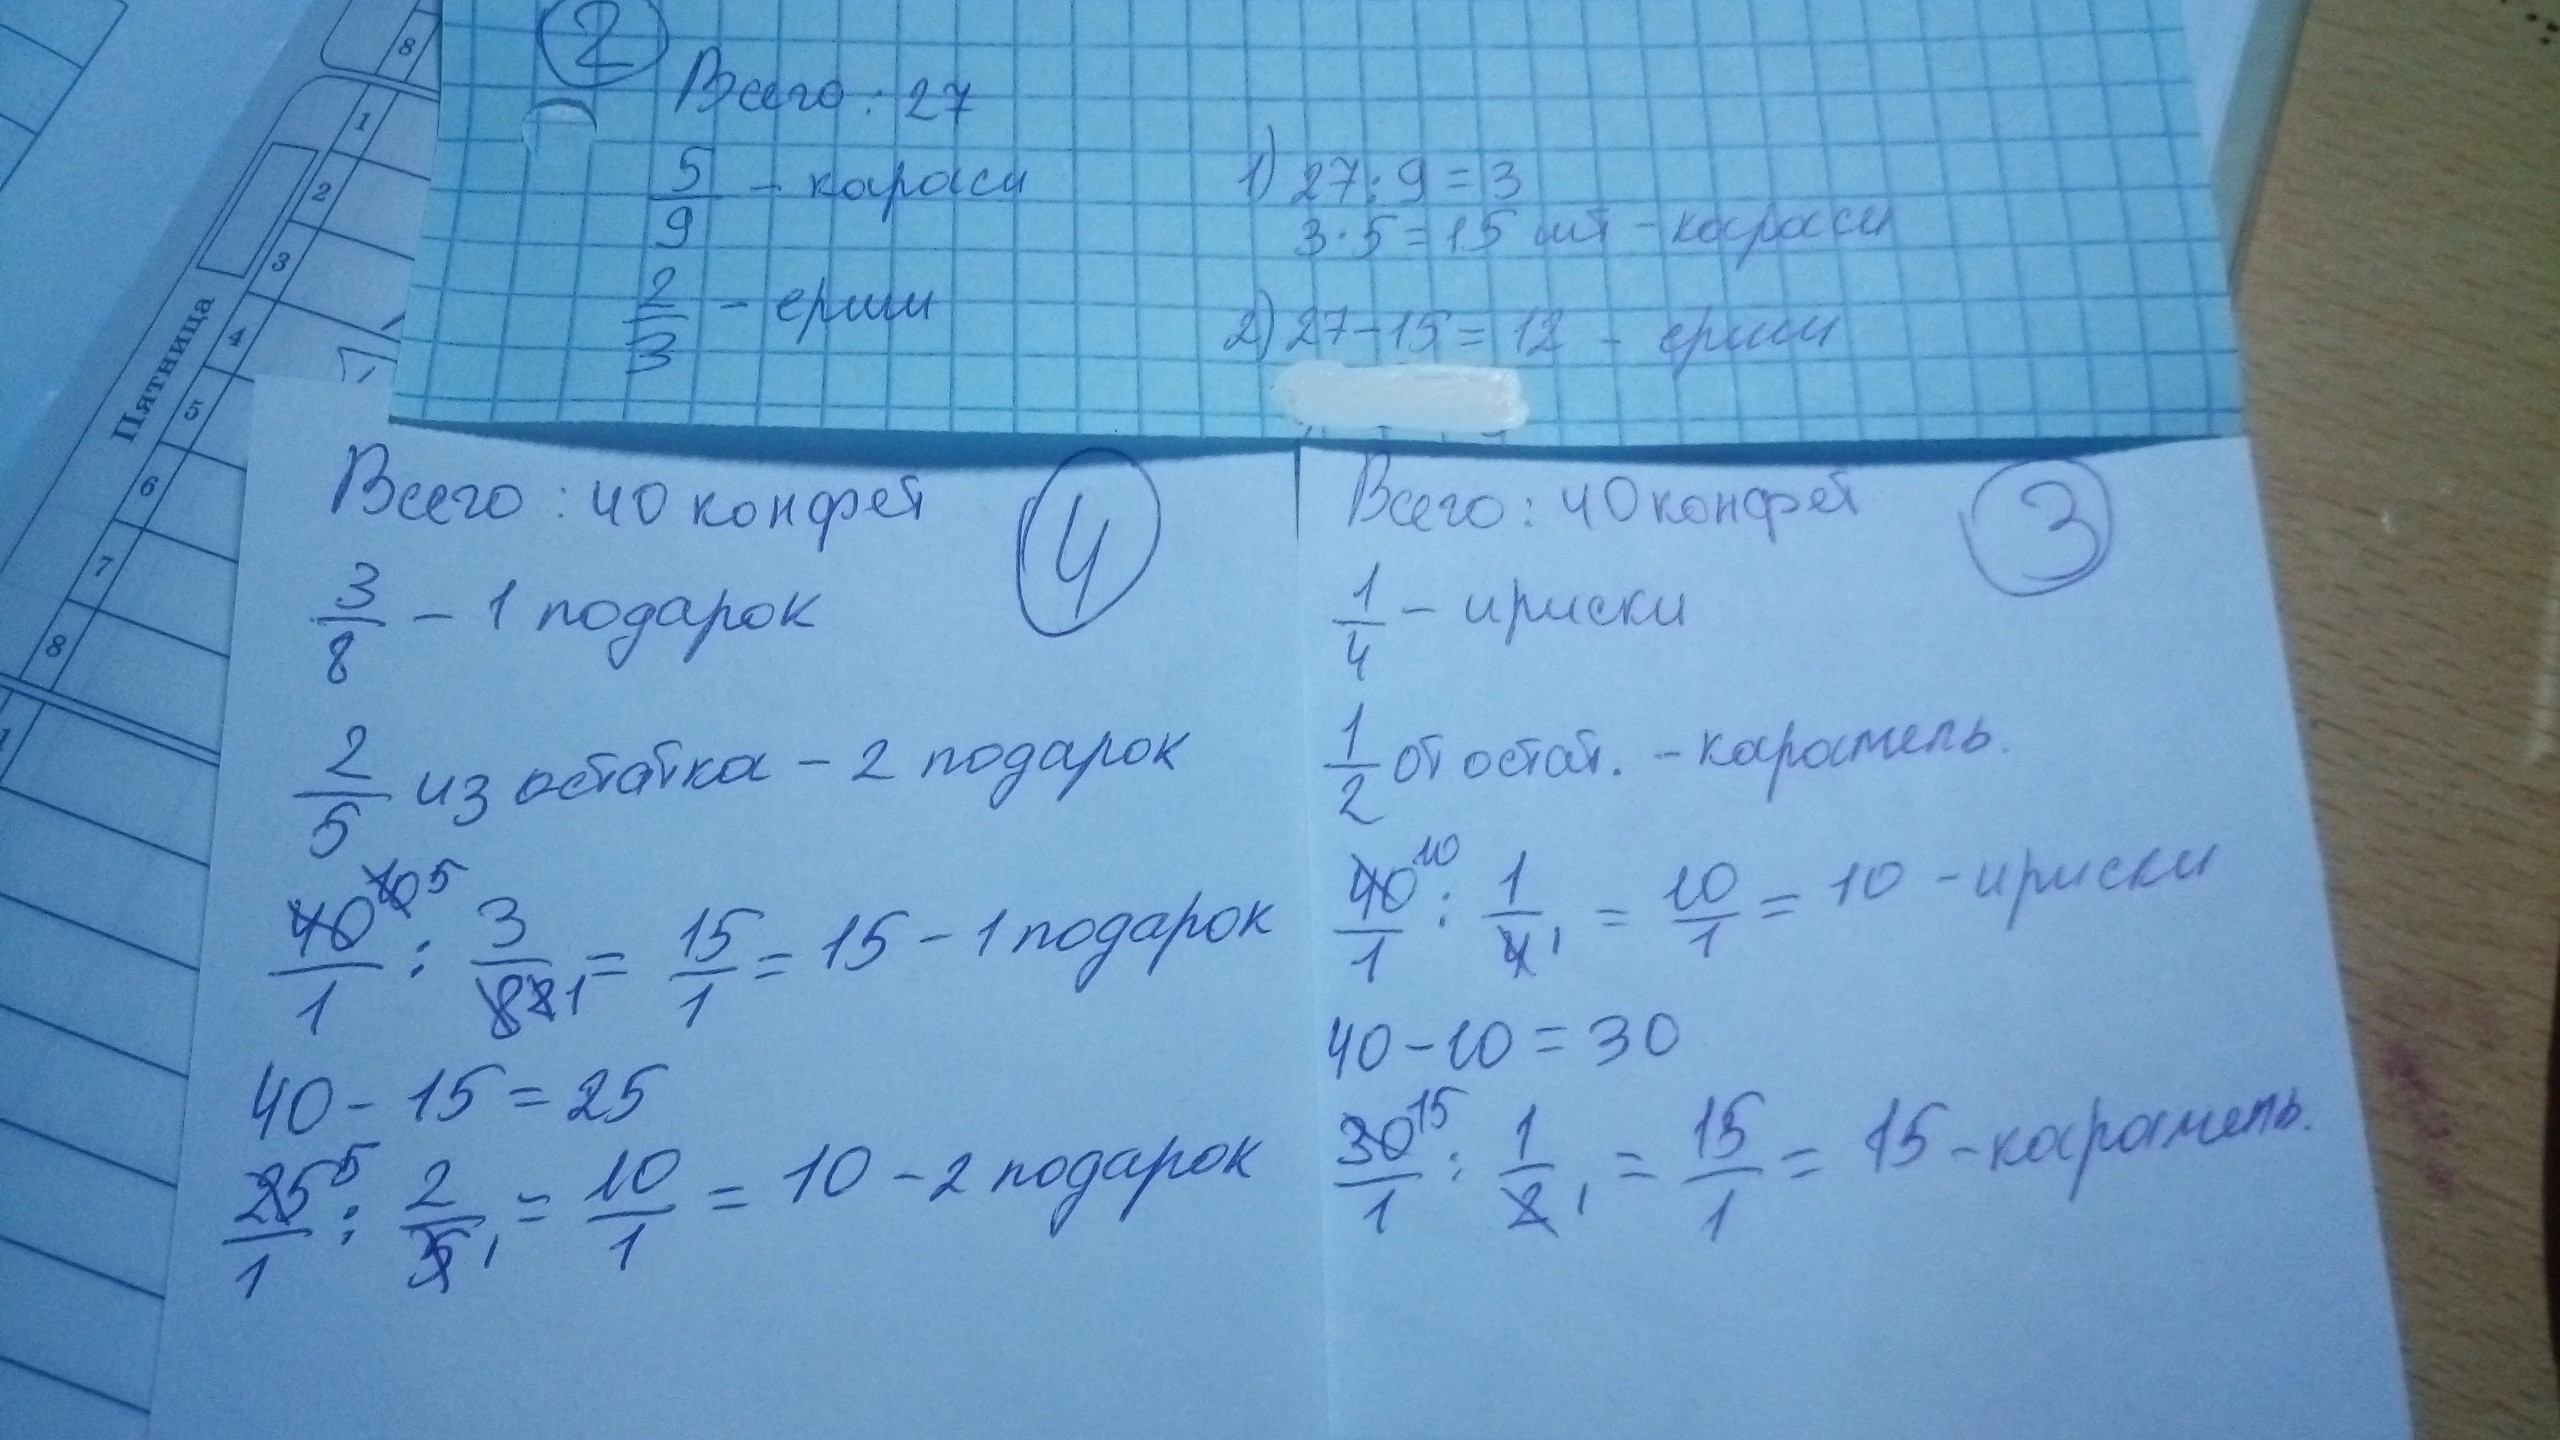 8
1
2
3
4
5
6
7
8
Пятница
2
Всего : 27
5/9 - караси
2/3 - ерши
1) 27 : 9 = 3
3 · 5 = 15 шт - караси
2) 27 - 15 = 12 - ерши
4
Всего : 40 конфет
3/8 - 1 подарок
2/5 из остатка - 2 подарок
40 10 5/1 : 3/8 2 1 = 15/1 = 15 - 1 подарок
40 - 15 = 25
25 5/1 : 2/5 1 = 10/1 = 10 - 2 подарок
3
Всего : 40 конфет
1/4 - ириски
1/2 от остат. - карамель.
40 10/1 : 1/4 1 = 10/1 = 10 - ириски
40 - 10 = 30
30 15/1 : 1/2 1 = 15/1 = 15 - карамель.